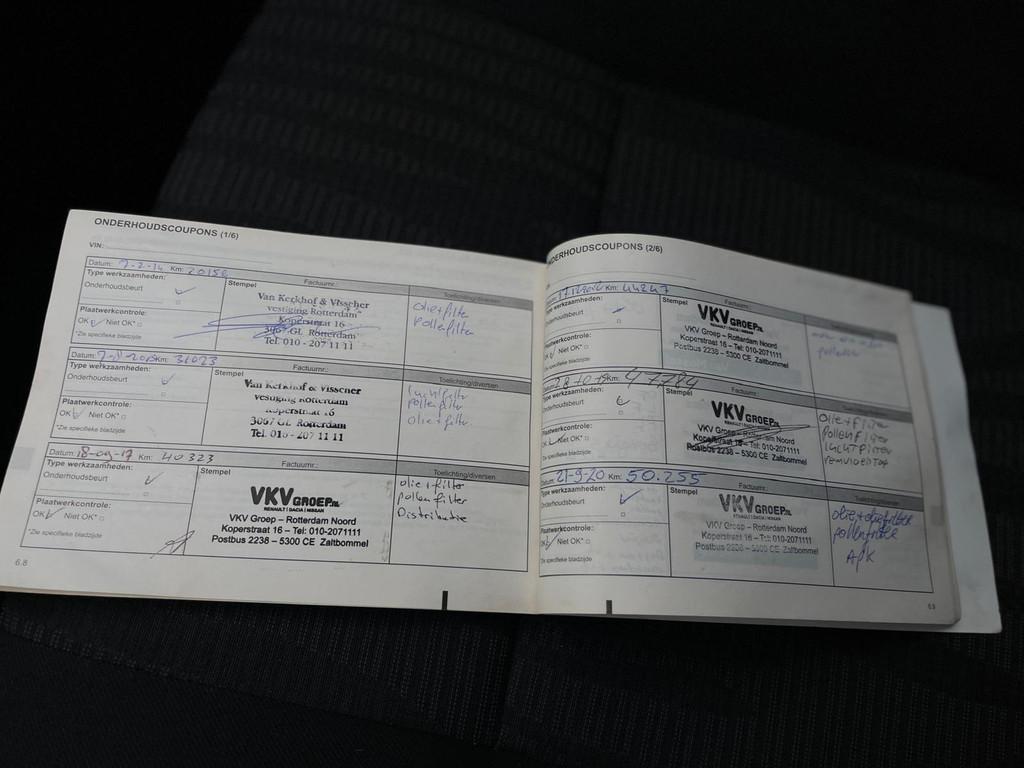 ONDERHOUDSCOUPONS (1/6)
VIN:
Datum: 7-2-14 Km: 20156 Factuurnr.:
Type werkzaamheden: Stempel Toelichting/diversen
Onderhoudsbeurt
Van Kerkhof & Visscher
vestiging Rotterdam
Koperstraat 16
3067 GL Rotterdam
Tel. 010 - 207 11 11
olie+filter
pollenfilter
Plaatwerkcontrole:
OK Niet OK*
*Zie specifieke bladzijde
Datum: Km: 31023 Factuurnr.:
Type werkzaamheden: Stempel Toelichting/diversen
Onderhoudsbeurt
Van Kerkhof & Visscher
vestiging Rotterdam
Koperstraat 16
3067 GL Rotterdam
Tel. 010 - 207 11 11
luchtfilter
pollenfilter
olie+filter
Plaatwerkcontrole:
OK Niet OK*
*Zie specifieke bladzijde
Datum: 18-09-17 Km: 40323 Factuurnr.:
Type werkzaamheden: Stempel Toelichting/diversen
Onderhoudsbeurt
VKV GROEP.NL
RENAULT | DACIA | NISSAN
VKV Groep – Rotterdam Noord
Koperstraat 16 – Tel: 010-2071111
Postbus 2238 – 5300 CE Zaltbommel
olie+filter
pollen filter
Distributie
Plaatwerkcontrole:
OK Niet OK*
*Zie specifieke bladzijde
6.8
ONDERHOUDSCOUPONS (2/6)
Km: 44247 Factuurnr.:
Type werkzaamheden: Stempel
Onderhoudsbeurt
VKV GROEP.NL
RENAULT | DACIA | NISSAN
VKV Groep – Rotterdam Noord
Koperstraat 16 – Tel: 010-2071111
Postbus 2238 – 5300 CE Zaltbommel
Plaatwerkcontrole:
OK Niet OK*
*Zie specifieke bladzijde
Km: 47784 Factuurnr.:
Type werkzaamheden: Stempel
Onderhoudsbeurt
VKV GROEP.NL
VKV Groep – Rotterdam Noord
Koperstraat 16 – Tel: 010-2071111
Postbus 2238 – 5300 CE Zaltbommel
olie+filter
pollenfilter
luchtfilter
remvloeistof
Plaatwerkcontrole:
OK Niet OK*
*Zie specifieke bladzijde
21-9-20 Km: 50.255 Factuurnr.:
Type werkzaamheden: Stempel
Onderhoudsbeurt
VKV GROEP.NL
RENAULT | DACIA | NISSAN
VKV Groep – Rotterdam Noord
Koperstraat 16 – Tel: 010-2071111
Postbus 2238 – 5300 CE Zaltbommel
olie+oliefilter
pollenfilter
APK
Plaatwerkcontrole:
OK Niet OK*
*Zie specifieke bladzijde
6.9